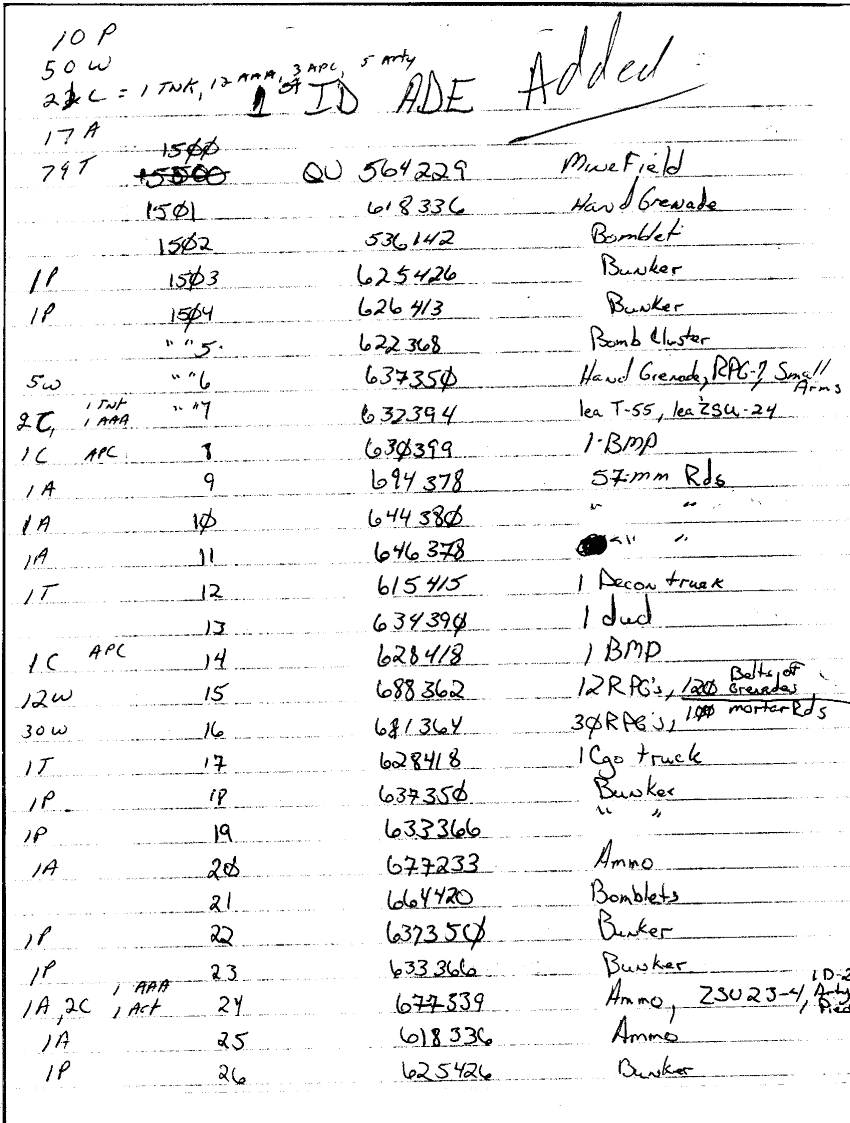 10 P
50 W
21 C = 1 TNK, 12 AAA, 3 APC, 5 Arty
1 ST ID ADE Added
17 A
1500
79 T 15500 QU 564229 Minefield
1501 618336 Hand Grenade
1502 536142 Bomblet
1P 1503 625426 Bunker
1P 1504 626413 Bunker
" " 5. 622368 Bomb Cluster
5W " " 6 637350 Hand Grenade, RPG-7, Small Arms
2C, 1 TNK 1 AAA " " 7 632394 1ea T-55, 1ea ZSU-24
1C APC 8 630399 1-BMP
1A 9 694378 57-mm Rds
1A 10 644380 " "
1A 11 646378 " " "
1T 12 615415 1 Decon truck
13 634390 1 dud
1C APC 14 628418 1 BMP
12W 15 688362 12 RPG's, 120 Belts of Grenades
30W 16 681364 30 RPG's, 100 mortar Rds
1T 17 628418 1 Cgo truck
1P 18 637350 Bunker
1P 19 633366 " "
1A 20 677233 Ammo
21 664420 Bomblets
1P 22 637350 Bunker
1P 23 633366 Bunker
1A, 2C 1 AAA 1 Art 24 677339 Ammo, ZSU 23-4, 1D-2 Arty Pied
1A 25 618336 Ammo
1P 26 625426 Bunker